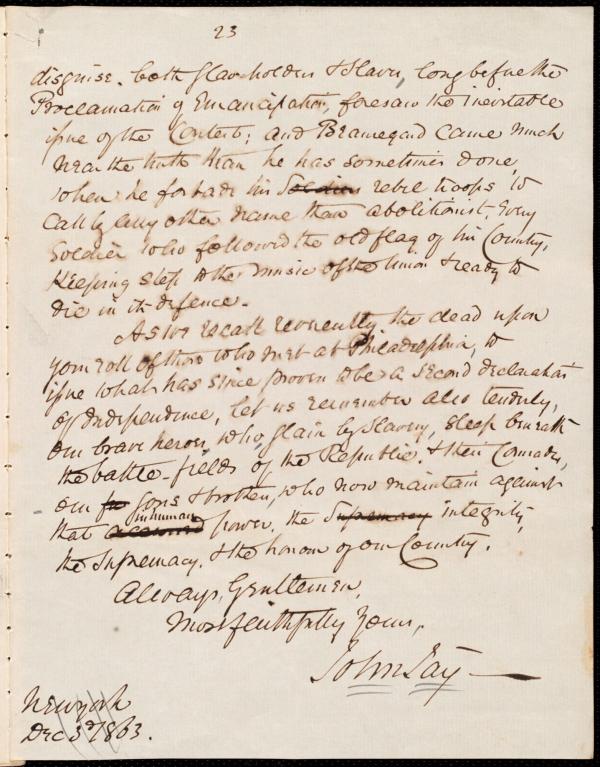 23
disguise. both slaveholders & slaves, long before the
Proclamation of Emancipation, foresaw the inevitable
issue of the Contest; and Beauregard came much
near the truth than he has sometimes done,
when he forbade his Soldiers rebel troops to
call by any other name than abolitionist, every
Soldier who followed the old flag of his Country,
Keeping step to the music of the Union & ready to
die in its defence.
As we recall reverently the dead upon
your roll of those who met at Philadelphia, to
issue what has since proven to be a second declaration
of Independence, let us remember also tenderly,
our brave heroes, who slain by Slavery, sleep beneath
the battle-fields of the Republic. & their Comrades,
our sons & brothers, who now maintain against
inhuman
that accursed power, the Supremacy integrity,
the Supremacy, & the honour of our Country.
Always, Gentlemen,
Most faithfully Yours,
John Jay
New York
Dec 3d 1863.